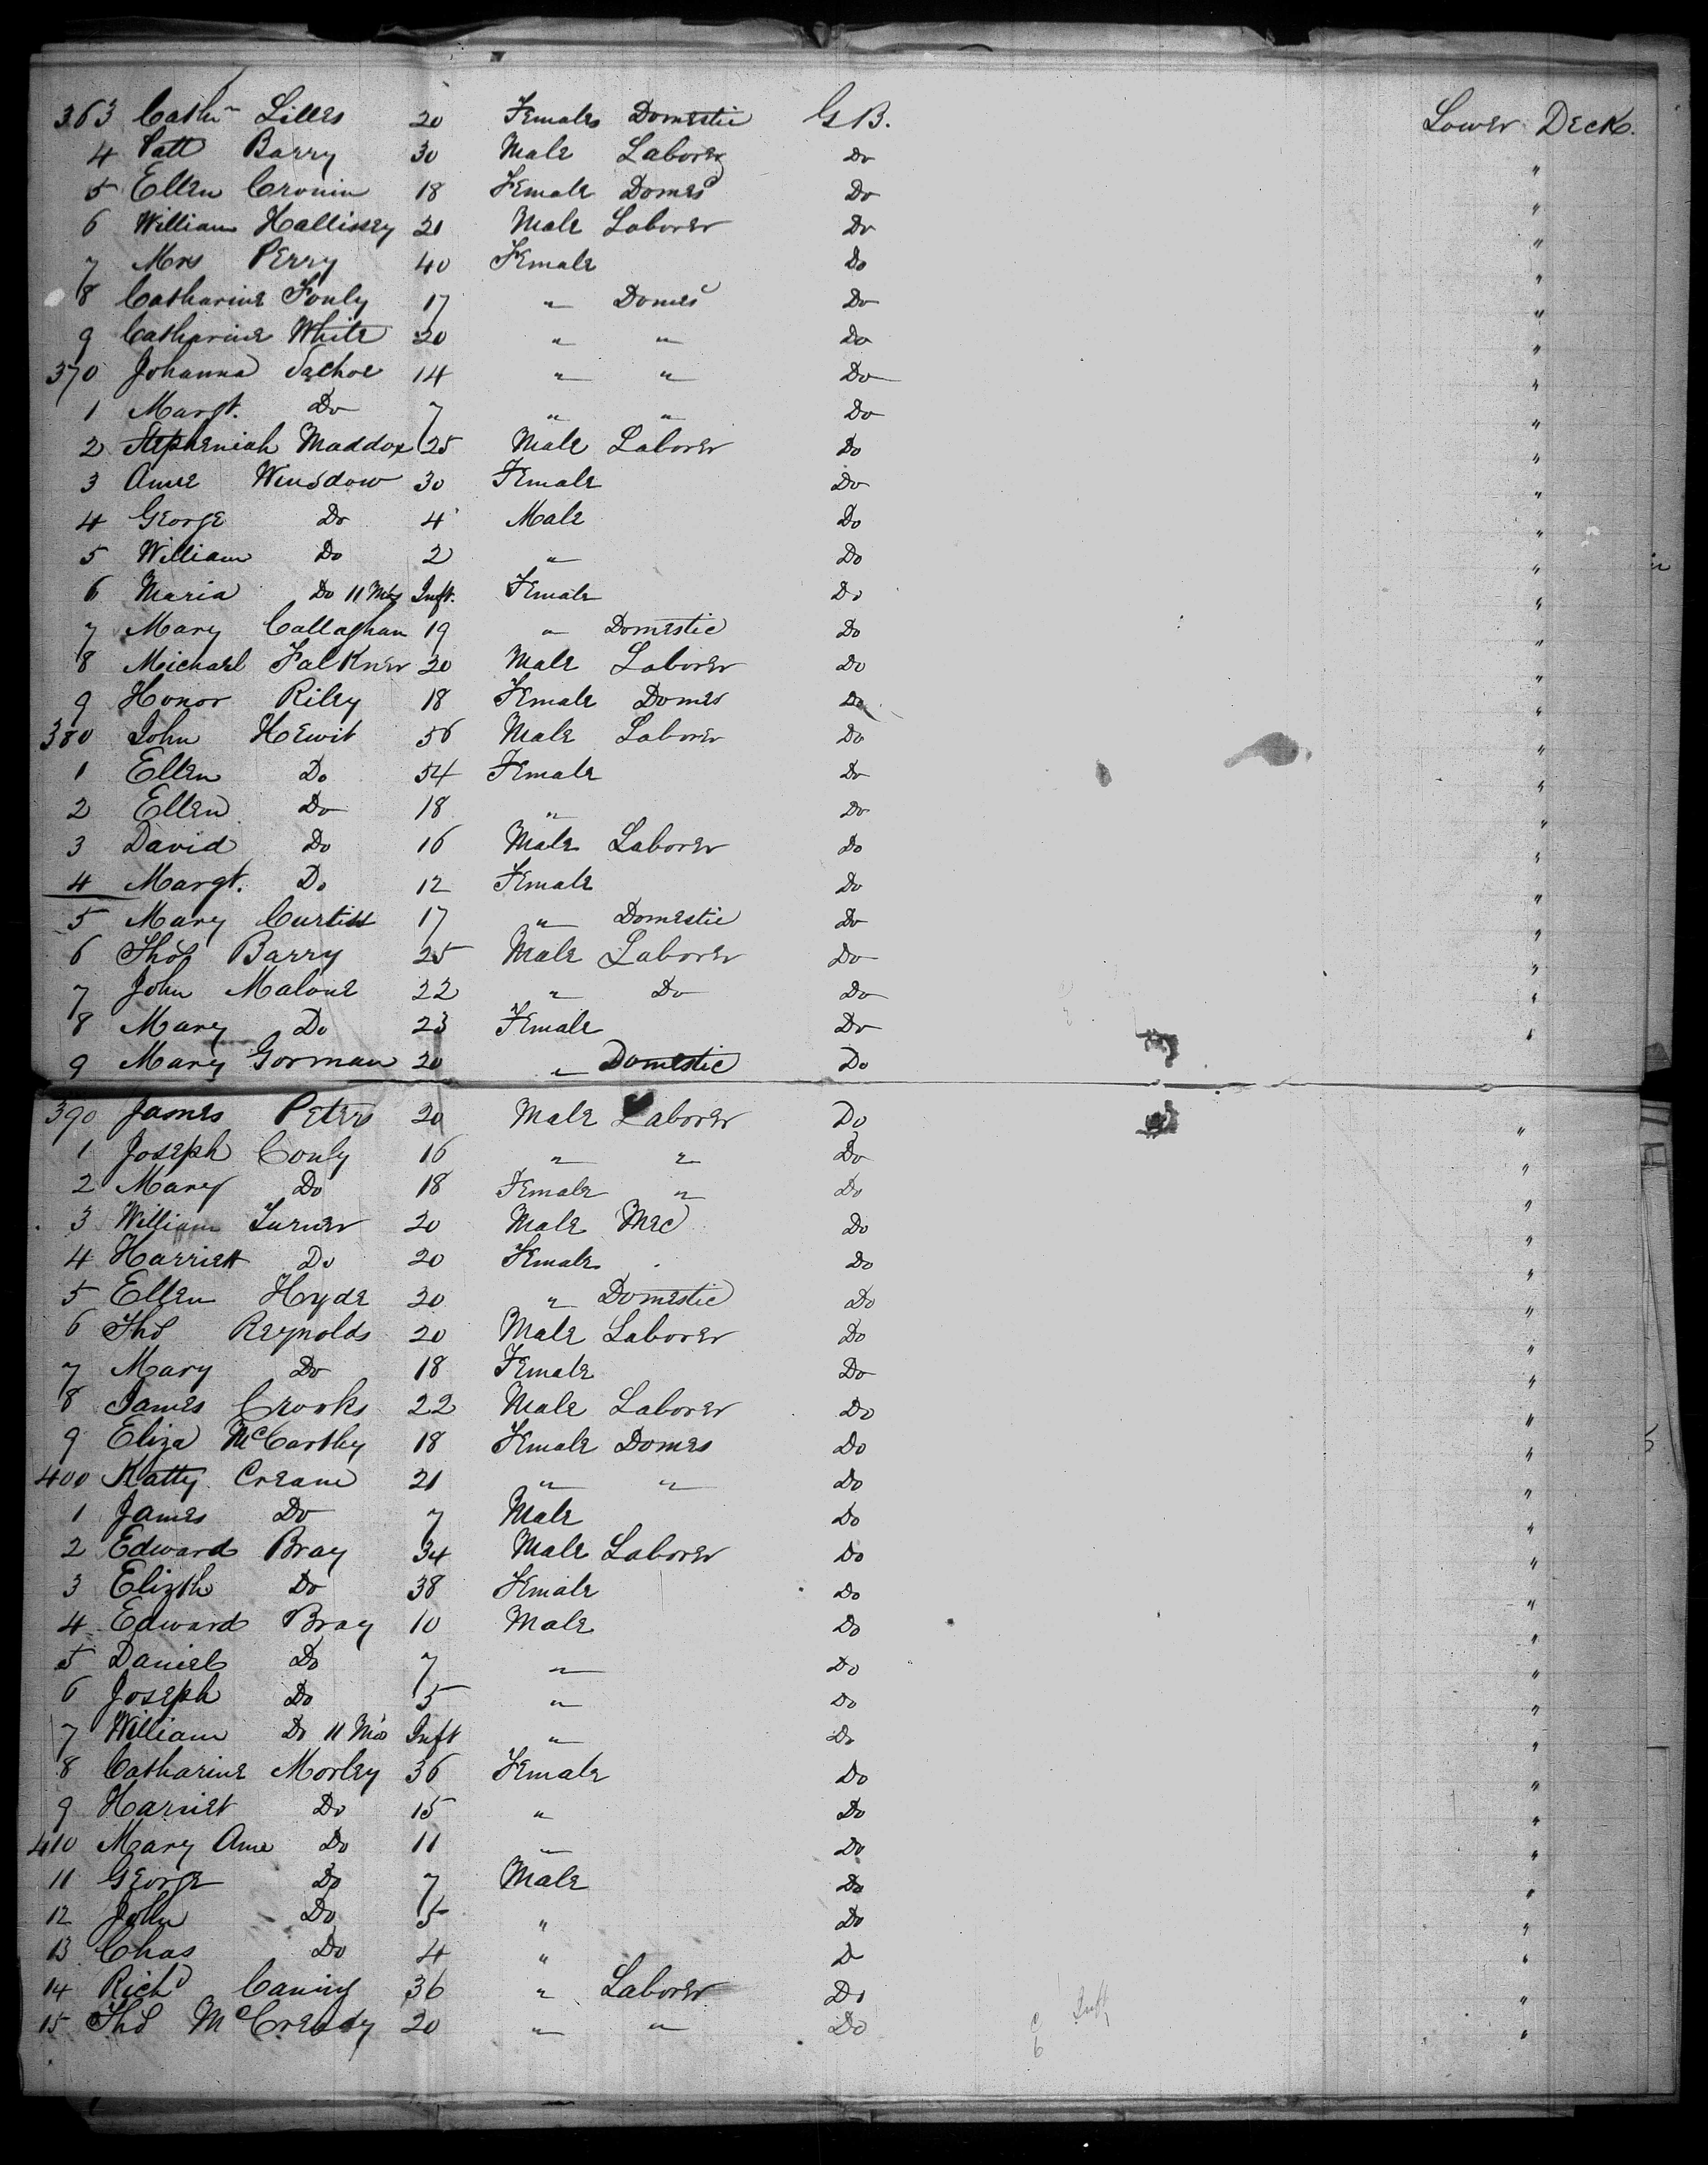 363 Cathn Lilles 20 Females Domestic G B. Lower Deck.
4 Patt Barry 30 Male Laborer Do "
5 Ellen Cronin 18 Female Domes Do "
6 William Hallissey 21 Male Laborer Do "
7 Mrs Perry 40 Female Do "
8 Catharine Fonly 17 " Domes Do "
9 Catharine White 20 " " Do "
370 Johanna 14 " " Do "
1 Margt. Do 7 " " Do "
2 Stepheniah Maddox 25 Male Laborer Do "
3 Anne Winsdow 30 Female Do "
4 George Do 4 Male Do "
5 William Do 2 " Do "
6 Maria Do 11 Mos Inft. Female Do "
7 Mary Callaghan 19 " Domestic Do "
8 Michael Falkner 20 Male Laborer Do "
9 Honor Riley 18 Female Domes Do "
380 John Hewit 56 Male Laborer Do "
1 Ellen Do 54 Female Do "
2 Ellen Do 18 " Do "
3 David Do 16 Male Laborer Do "
4 Margt. Do 12 Female Do "
5 Mary Curtiss 17 " Domestic Do "
6 Thos Barry 25 Male Laborer Do "
7 John Malone 22 " Do Do "
8 Mary Do 23 Female Do "
9 Mary Gorman 20 " Domestic Do
390 James Peters 20 Male Laborer Do "
1 Joseph Conly 16 " " Do "
2 Mary Do 18 Female " Do "
3 William Turner 20 Male Mec Do "
4 Harriett Do 20 Female Do "
5 Ellen Hyde 20 " Domestic Do "
6 Tho Reynolds 20 Male Laborer Do "
7 Mary Do 18 Female Do "
8 James Crooks 22 Male Laborer Do "
9 Eliza McCarthy 18 Female Domes Do "
400 Katty Creane 21 " " Do "
1 James Do 7 Male Do "
2 Edward Bray 34 Male Laborer Do "
3 Elizth Do 38 Female Do "
4 Edward Bray 10 Male Do "
5 Daniel Do 7 " Do "
6 Joseph Do 5 " Do "
7 William Do 11 Mos Inft " Do "
8 Catharine Morley 36 Female Do "
9 Harriet Do 15 " Do "
410 Mary Ann Do 11 " Do "
11 George Do 7 Male Do "
12 John Do 5 " Do "
13 Chas Do 4 " D "
14 Richd Caning 36 " Laborer Do "
15 Tho McCready 20 " " Do "